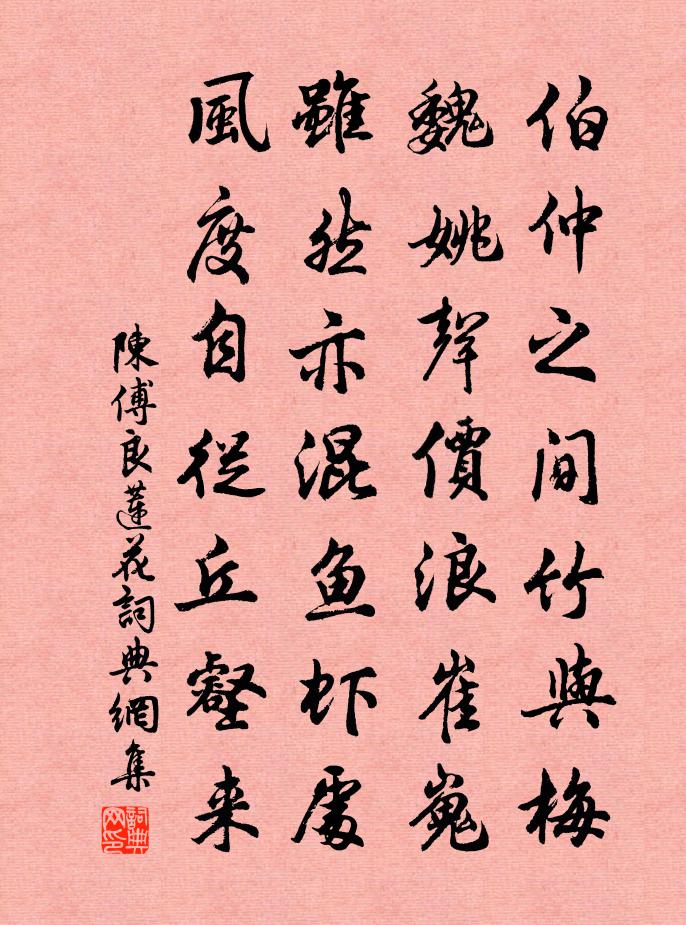 伯仲之间竹與梅
魏姚聲價浪崔嵬
雖然亦混鱼虾處
風度自從丘壑来
陳傅良蓮花詞典網集
詞典网印